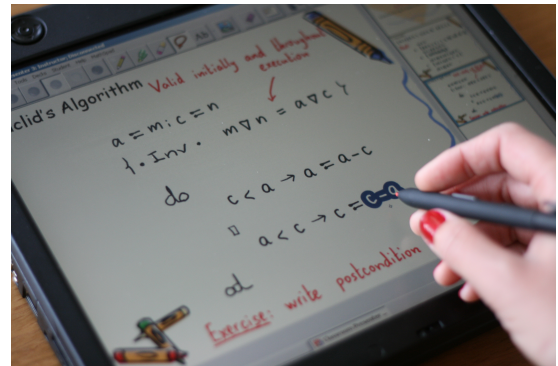 clid's Algorithm
Valid initially and throughout
execution
a = m ; c = n
{ • Inv • m ∇ n = a ∇ c }
do
c < a → a = a - c
▯
a < c → c = c - a
od
Exercise: write postcondition